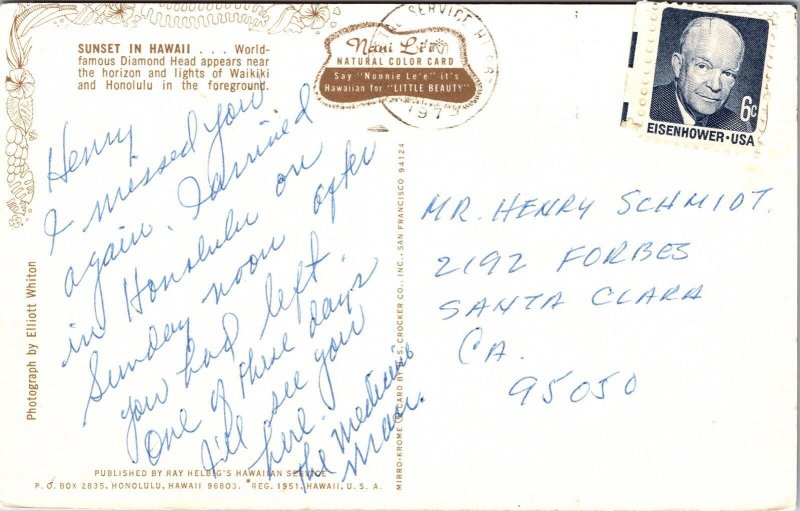 SUNSET IN HAWAII . . . World-
famous Diamond Head appears near
the horizon and lights of Waikiki
and Honolulu in the foreground.
Nani Li'i
NATURAL COLOR CARD
Say "Nonnie Le'e" it's
Hawaiian for "LITTLE BEAUTY"
SERVICE
1973
6c
EISENHOWER·USA
Henry
I missed you
again. I arrived
in Honolulu on
Sunday noon after
you had left.
One of these days
I'll see you
here.
the medicine
man.
MR. HENRY SCHMIDT.
2192 FORBES
SANTA CLARA
CA.
95050
Photograph by Elliott Whiton
MIRRO-KROME ® CARD BY H. S. CROCKER CO., INC., SAN FRANCISCO 94124
PUBLISHED BY RAY HELBIG'S HAWAIIAN SERVICE
P. O. BOX 2835, HONOLULU, HAWAII 96803. *REG. 1951, HAWAII, U. S. A.